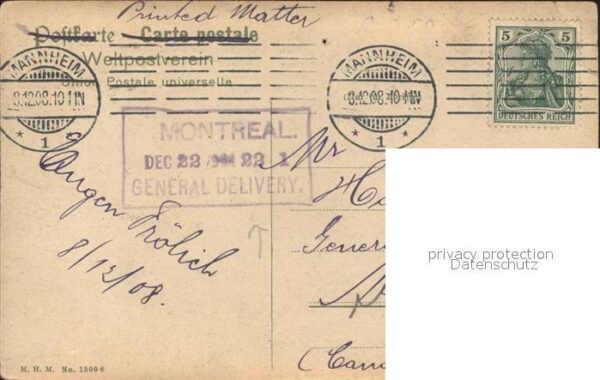 Printed Matter
Postkarte — Carte postale
Weltpostverein
Union Postale universelle
MANNHEIM
8.12.08.10-11V.
* 1 *
MANNHEIM
8.12.08.10-11V.
* 1 *
5 5
DEUTSCHES REICH
MONTREAL.
DEC 22 22 1
GENERAL DELIVERY.
Mr
Eugen Frölich
8/12/08.
Gener
(Cana
privacy protection
Datenschutz
M. H. M. No. 15006